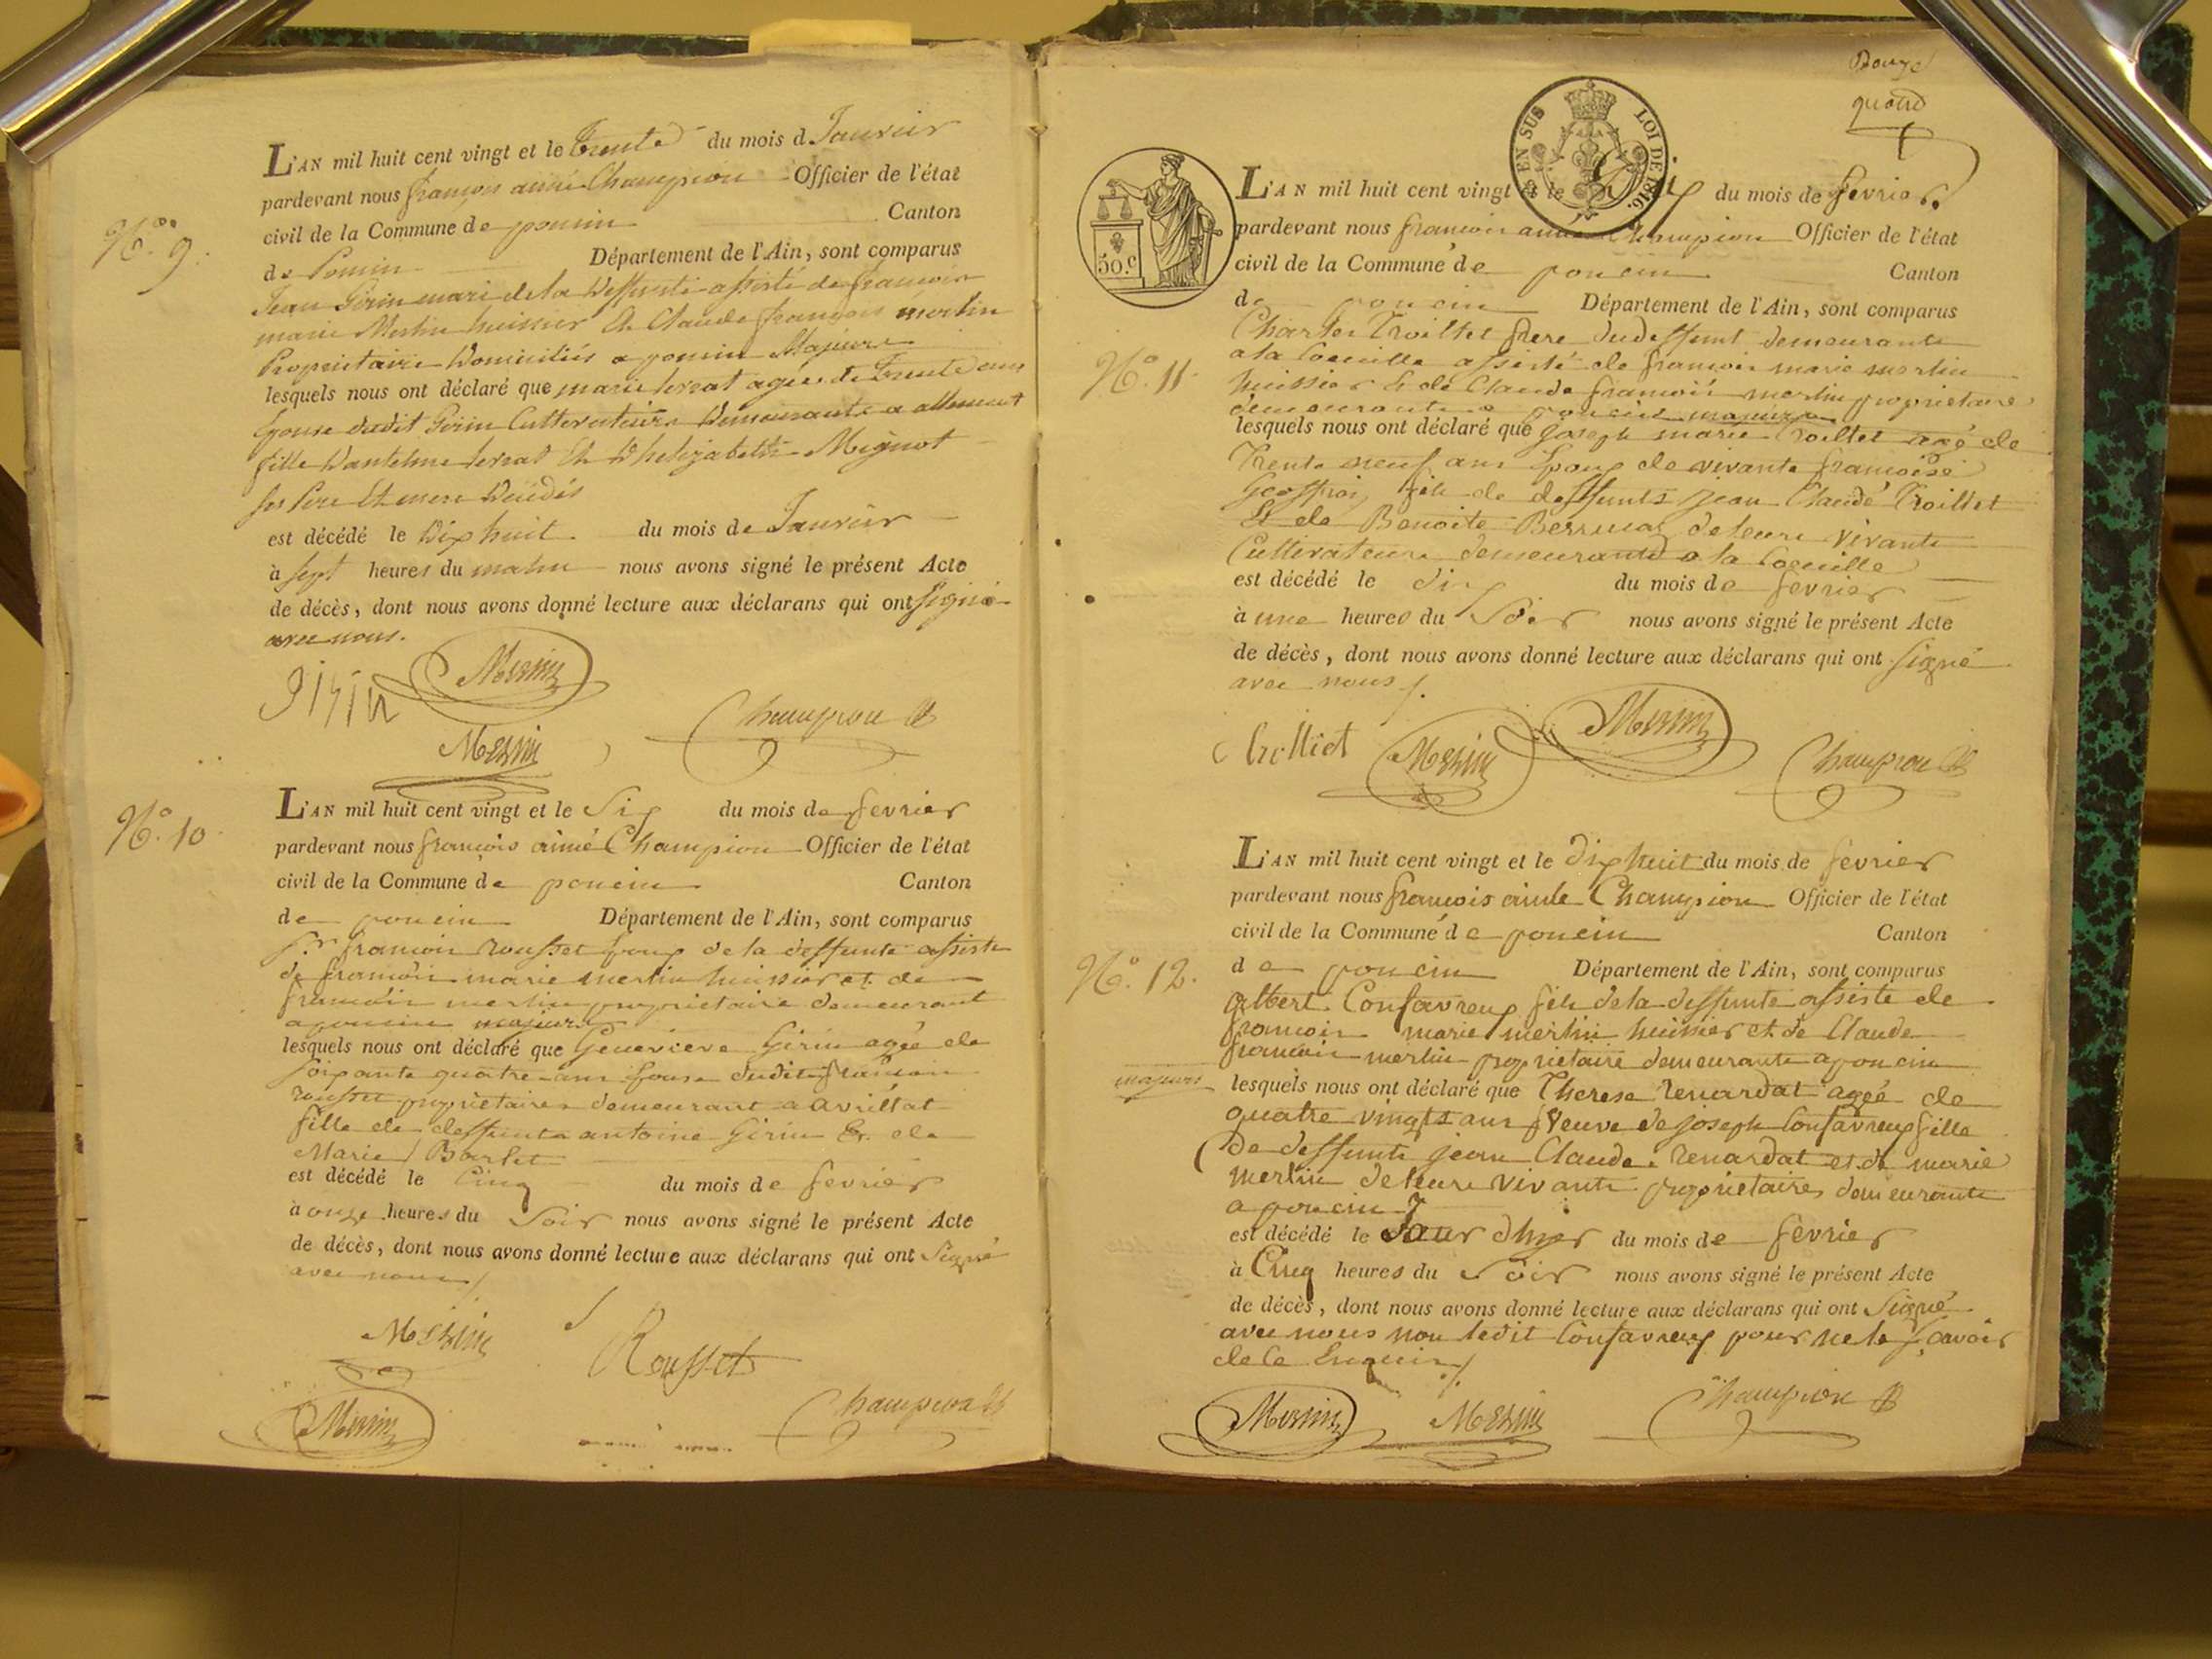 N.o 9.
L'AN mil huit cent vingt et le trente du mois d Janvier
pardevant nous françois aimé Champion Officier de l'état
civil de la Commune de poncin Canton
de Poncin Département de l'Ain, sont comparus
Jean Girin mari de la deffunte assisté de françois
marie Merlin huissier Et Claude françois merlin
Propriétaire Domiciliés a poncin Majeurs
lesquels nous ont déclaré que marie agée de Trente ans
Epouse dudit Girin Cultivateurs Demeurants a allement
fille Et Mignot
ses Pere Et mere Décédés
est décédé le Dix huit du mois de Janvier
à sept heures du matin nous avons signé le présent Acte
de décès, dont nous avons donné lecture aux déclarans qui ont signé
avec nous.
girin Merlin
Merlin Champion
N.o 10
L'AN mil huit cent vingt et le Six du mois de fevrier
pardevant nous françois aimé Champion Officier de l'état
civil de la Commune de poncin Canton
de poncin Département de l'Ain, sont comparus
s.r françois rousset Epoux de la deffunte assisté
de françois marie merlin huissier et de
françois merlin propriétaire demeurant
a poncin majeurs
lesquels nous ont déclaré que Geneviève Girin agée de
soixante quatre ans Epouse dudit françois
rousset propriétaires demeurant a avrillat
fille de deffunts antoine Girin Et de
Marie Barlet
est décédé le Cinq du mois de fevrier
à onze heures du Soir nous avons signé le présent Acte
de décès, dont nous avons donné lecture aux déclarans qui ont Signé
avec nous
Merlin Rousset
Merlin Champion
Douze
quatre
EN SUS LOI DE 1816.
50.c
N.o 11
L'AN mil huit cent vingt et le du mois de fevrier
pardevant nous françois aimé Champion Officier de l'état
civil de la Commune de poncin Canton
de poncin Département de l'Ain, sont comparus
Charles Troillet frere dudeffunt demeurante
a la Coeuille assisté de françois marie merlin
huissier Et de Claude françois merlin propriétaire
demeurants a poncin majeurs
lesquels nous ont déclaré que joseph marie Troillet agé de
Trente neuf ans Epoux de vivante françoise
Geoffroi, fils de deffunts jean Claude Troillet
Et de Benoite de leurs vivants
Cultivateurs demeurants a la Coeuille
est décédé le dix du mois de fevrier
à une heures du Soir nous avons signé le présent Acte
de décès, dont nous avons donné lecture aux déclarans qui ont signé
avec nous
trolliet Merlin Merlin Champion
N.o 12.
L'AN mil huit cent vingt et le dix huit du mois de fevrier
pardevant nous françois aimé Champion Officier de l'état
civil de la Commune de poncin Canton
de poncin Département de l'Ain, sont comparus
albert Confavreux fils de la deffunte assisté de
françois marie merlin huissier et de Claude
françois merlin propriétaire demeurants a poncin
majeurs
lesquels nous ont déclaré que Therese renardat agée de
quatre vingts ans Veuve de joseph Confavreux fille
de deffunts jean Claude renardat et de marie
merlin de leurs vivants propriétaires demeurants
a poncin
est décédé le jour dhyer du mois de fevrier
à Cinq heures du Soir nous avons signé le présent Acte
de décès, dont nous avons donné lecture aux déclarans qui ont Signé
avec nous non ledit Confavreux pour ne le sçavoir
de ce Enquis
Merlin Merlin Champion